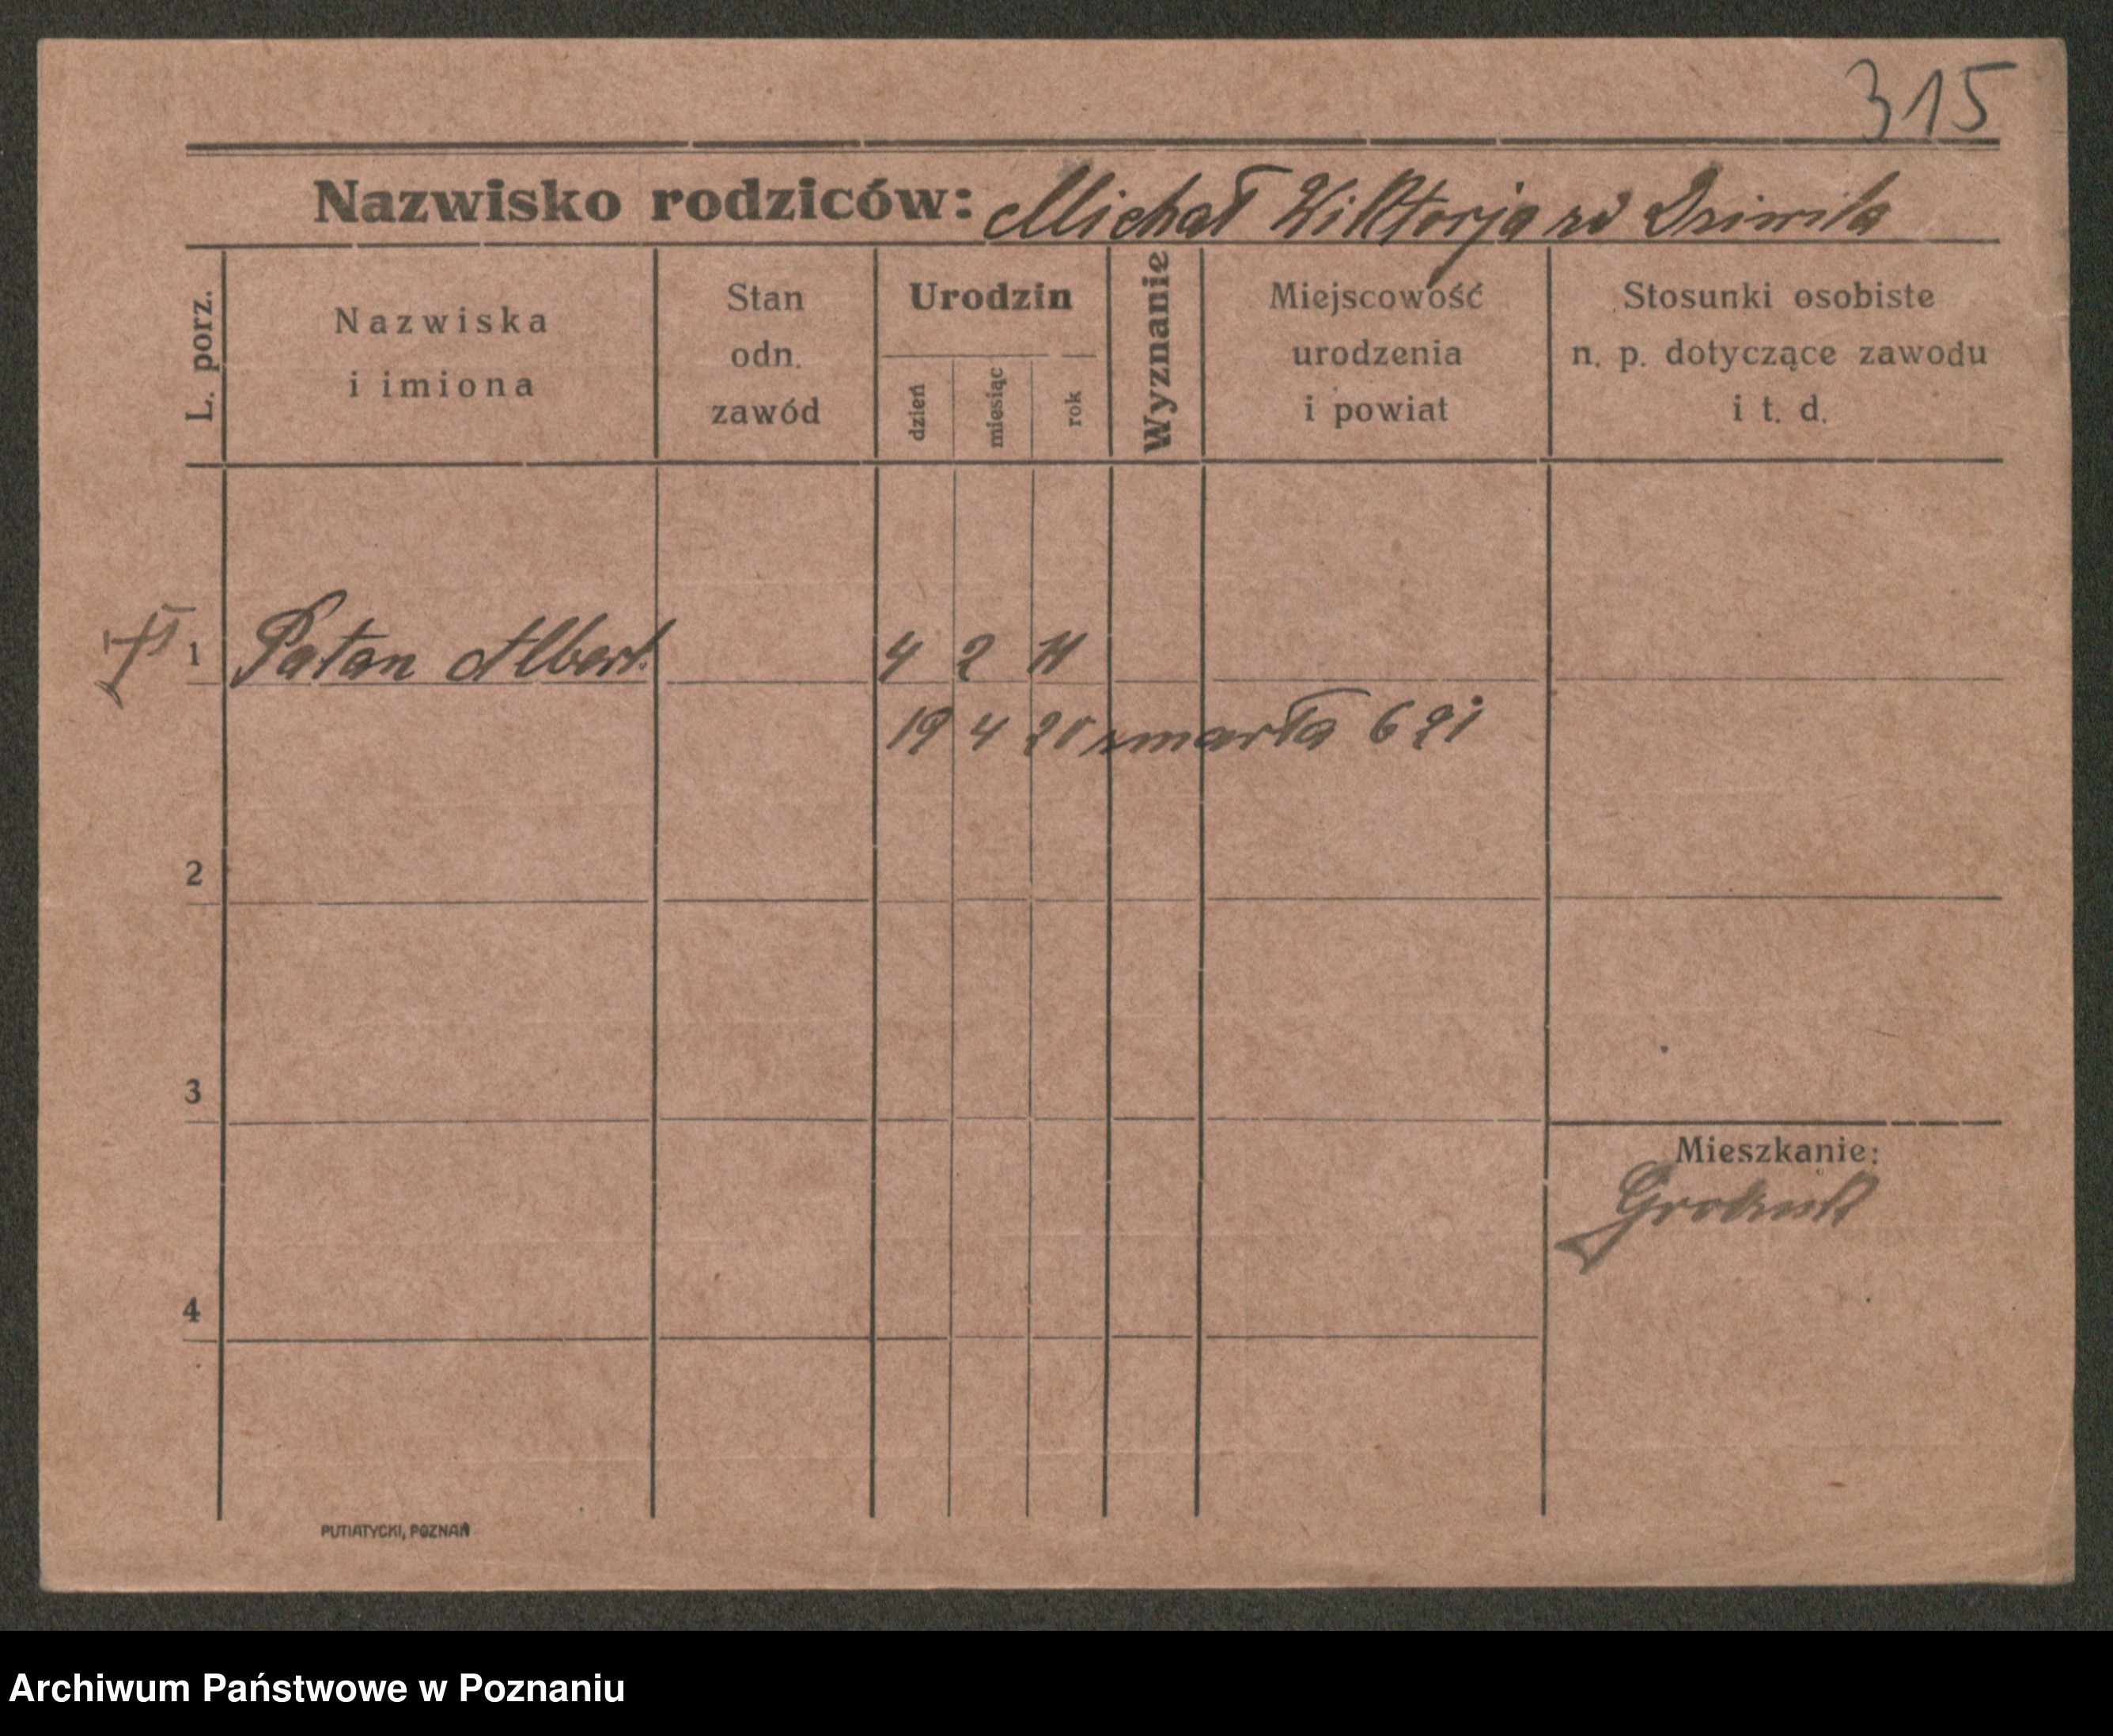 315
Nazwisko rodziców: Michał Wiktorja
L. porz.
Nazwiska
i imiona
Stan
odn.
zawód
Urodzin
dzień
miesiąc
rok
Wyznanie
Miejscowość
urodzenia
i powiat
Stosunki osobiste
n. p. dotyczące zawodu
i t. d.
1 Patan Albert 4 2 11
19 4 20 zmarła
2
3
Mieszkanie:
4
PUTIATYCKI, POZNAŃ
Archiwum Państwowe w Poznaniu